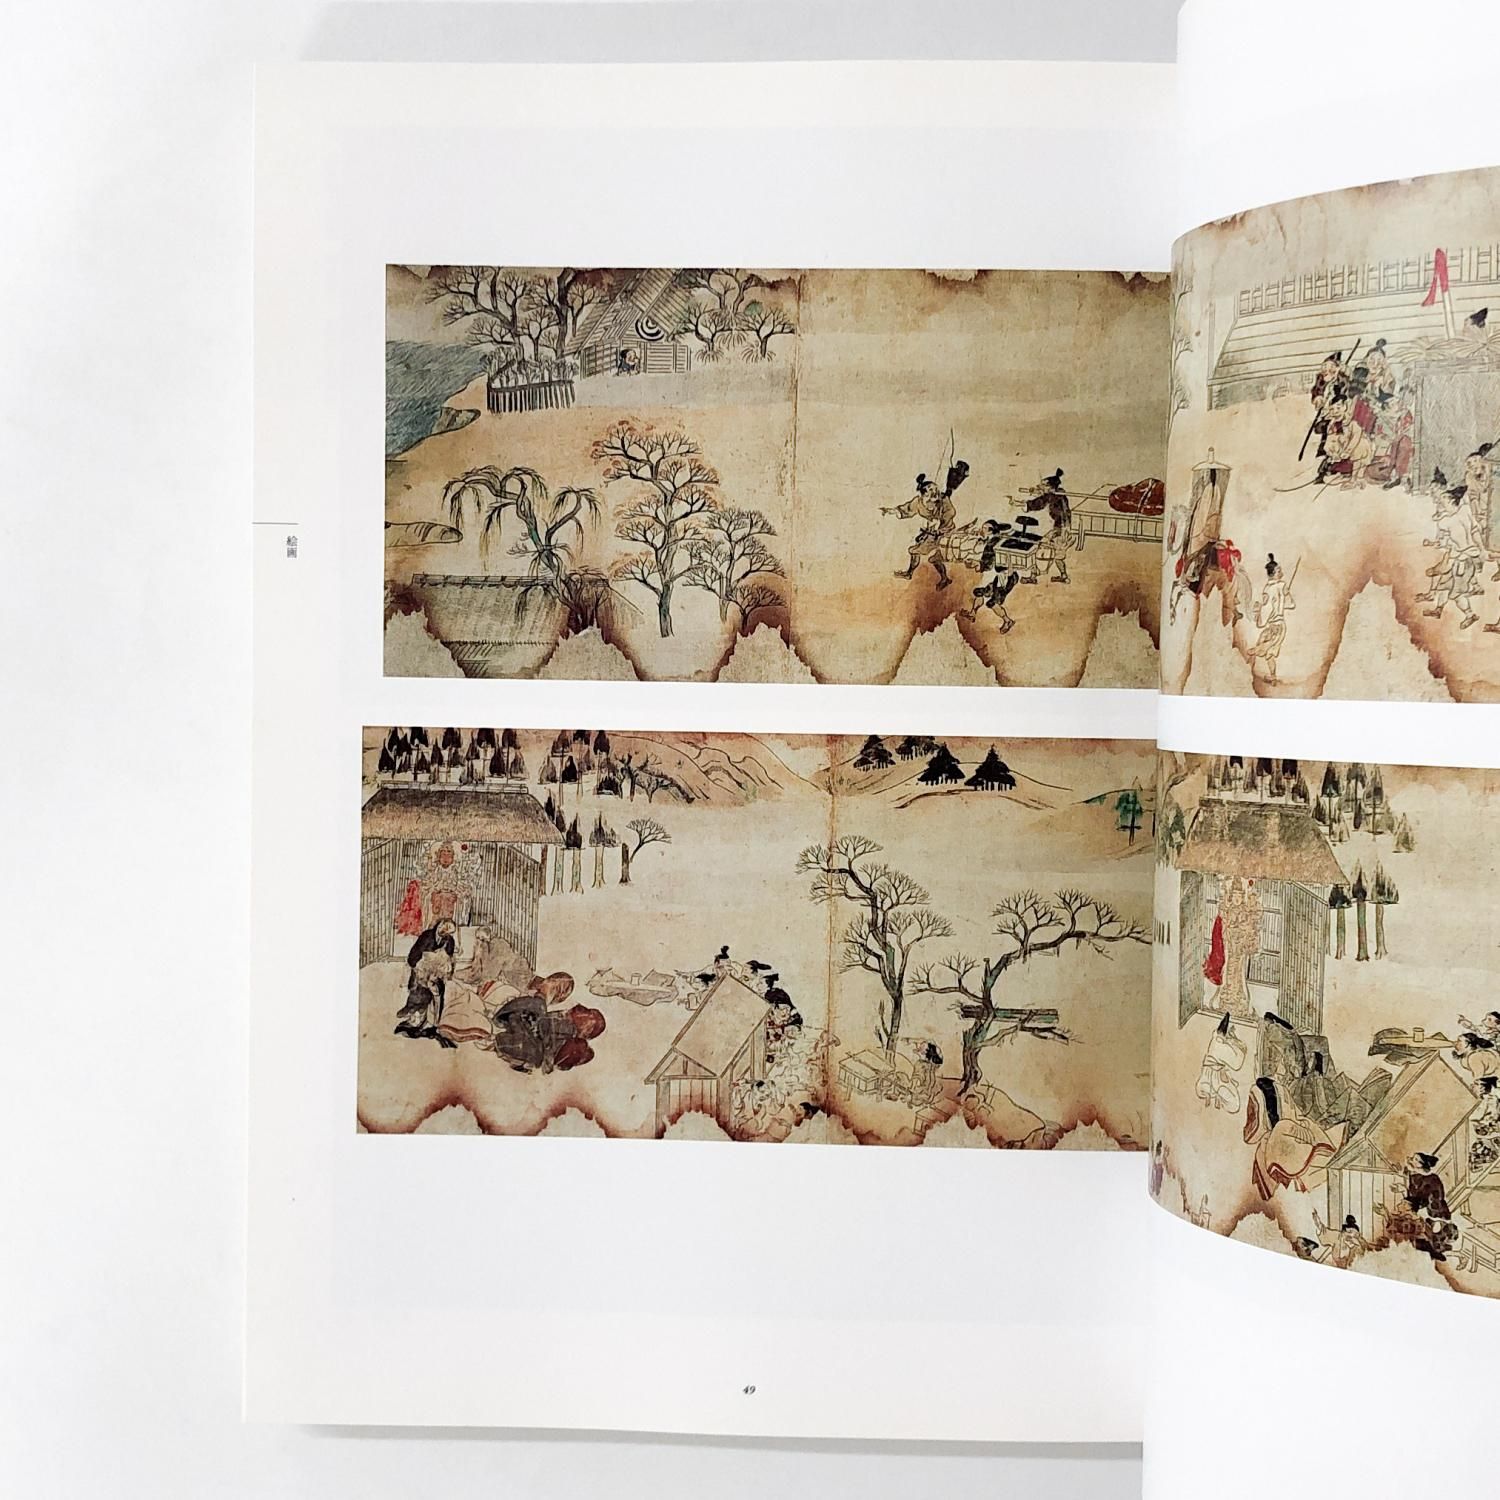 絵画
49